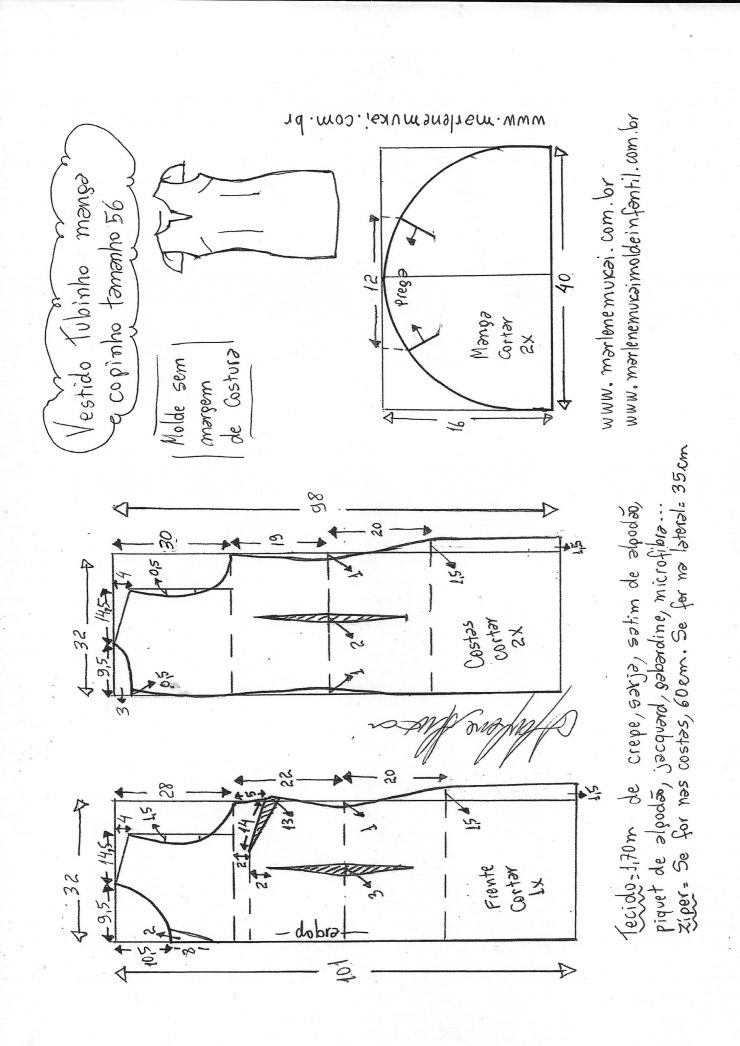 Vestido Tubinho manga
copinho tamanho 56
Molde sem
margem
de costura
www.marlenemukai.com.br
12
Prega
Manga
Cortar
2x
16
40
www.marlenemukai.com.br
www.marlenemukaimoldeinfantil.com.br
32
9,5
14,5
4
3
0,5
0,5
30
19
20
98
1
2
1
1,5
1,5
Costas
cortar
2x
32
9,5
14,5
4
1,5
28
22
20
5
14
13
2
2
3
1
1,5
1,5
10,5
2
8
101
dobra
Frente
Cortar
1x
Tecido=1,70m de crepe, sarja, satim de algodão,
piquet de algodão, jacquard, gabardine, microfibra...
Ziper= Se for nas costas, 60cm. Se for na lateral= 35cm